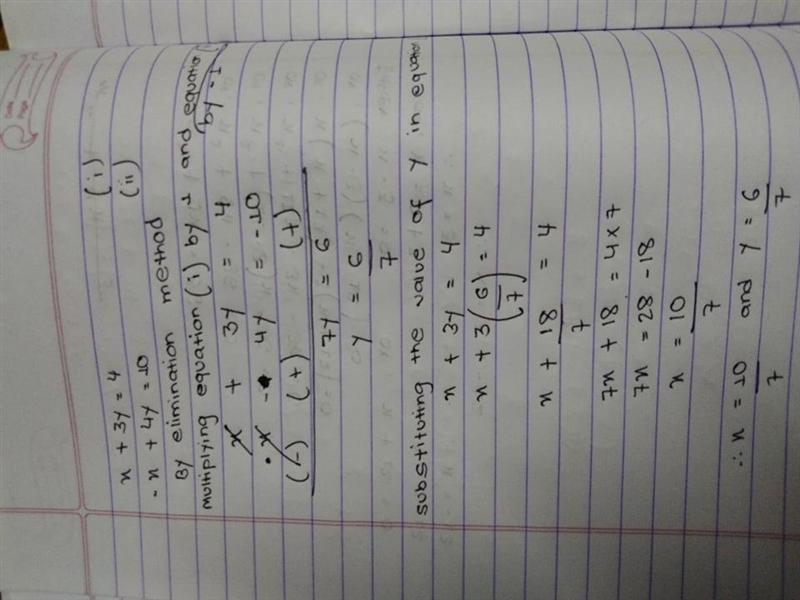 x + 3y = 4 (i)
- x + 4y = 10 (ii)
By elimination method
multiplying equation (i) by 1 and equation
by -1
x + 3y = 4
x - 4y = -10
(-) (+) (+)
7y = 6
y = 6
7
substituting the value of y in equation
x + 3y = 4
x + 3(6) = 4
7
x + 18 = 4
7
7x + 18 = 4 x 7
7x = 28 - 18
x = 10
7
∴ x = 10 and y = 6
7 7